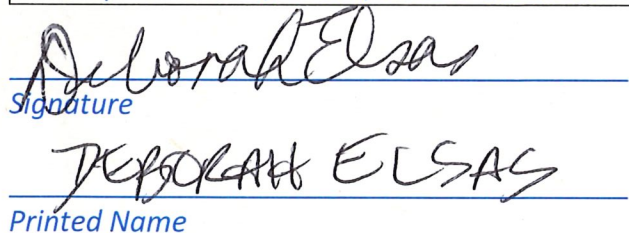 Deborah Elsas
Signature
DEBORAH ELSAS
Printed Name